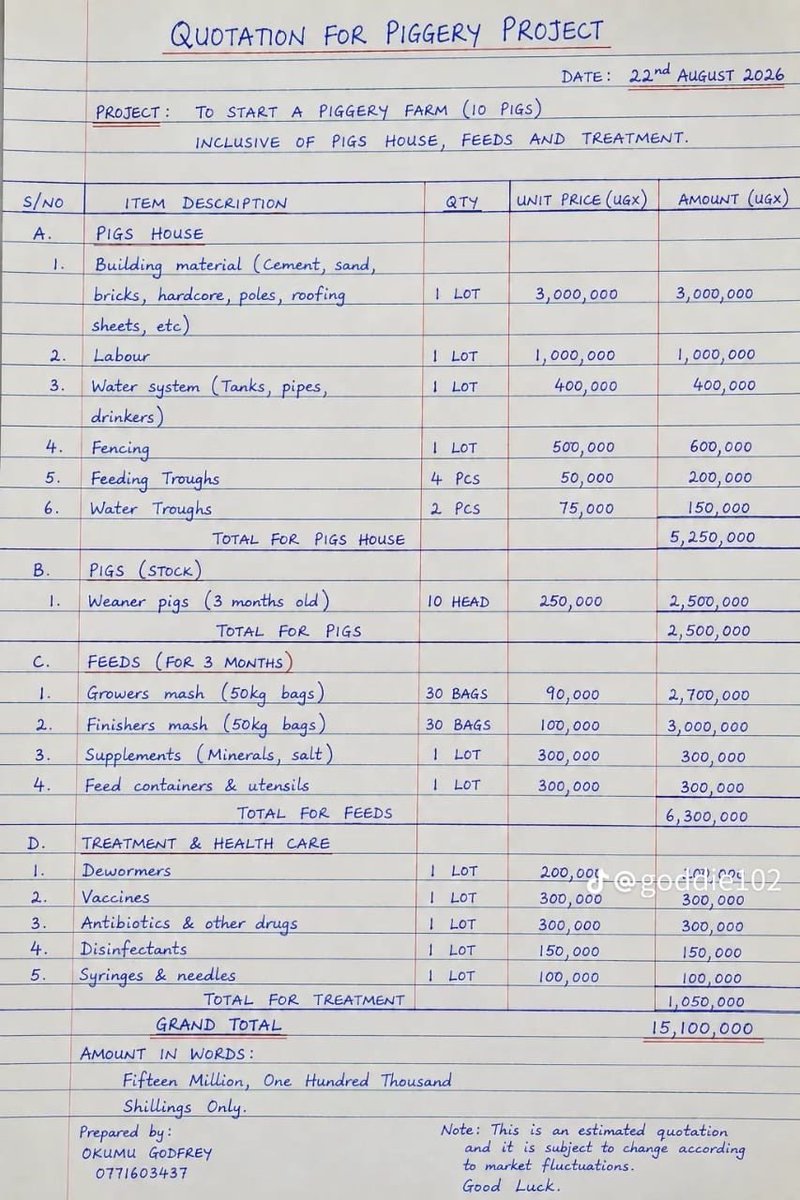 QUOTATION FOR PIGGERY PROJECT
DATE: 22nd AUGUST 2026
PROJECT: TO START A PIGGERY FARM (10 PIGS)
INCLUSIVE OF PIGS HOUSE, FEEDS AND TREATMENT.
S/NO ITEM DESCRIPTION QTY UNIT PRICE (UGX) AMOUNT (UGX)
A. PIGS HOUSE
1. Building material (Cement, sand,
bricks, hardcore, poles, roofing 1 LOT 3,000,000 3,000,000
sheets, etc)
2. Labour 1 LOT 1,000,000 1,000,000
3. Water system (Tanks, pipes, 1 LOT 400,000 400,000
drinkers)
4. Fencing 1 LOT 500,000 600,000
5. Feeding Troughs 4 Pcs 50,000 200,000
6. Water Troughs 2 Pcs 75,000 150,000
TOTAL FOR PIGS HOUSE 5,250,000
B. PIGS (STOCK)
1. Weaner pigs (3 months old) 10 HEAD 250,000 2,500,000
TOTAL FOR PIGS 2,500,000
C. FEEDS (FOR 3 MONTHS)
1. Growers mash (50kg bags) 30 BAGS 90,000 2,700,000
2. Finishers mash (50kg bags) 30 BAGS 100,000 3,000,000
3. Supplements (Minerals, salt) 1 LOT 300,000 300,000
4. Feed containers & utensils 1 LOT 300,000 300,000
TOTAL FOR FEEDS 6,300,000
D. TREATMENT & HEALTH CARE
1. Dewormers 1 LOT 200,000
@goddie102
2. Vaccines 1 LOT 300,000 300,000
3. Antibiotics & other drugs 1 LOT 300,000 300,000
4. Disinfectants 1 LOT 150,000 150,000
5. Syringes & needles 1 LOT 100,000 100,000
TOTAL FOR TREATMENT 1,050,000
GRAND TOTAL 15,100,000
AMOUNT IN WORDS:
Fifteen Million, One Hundred Thousand
Shillings Only.
Prepared by:
OKUMU GODFREY
0771603437
Note: This is an estimated quotation
and it is subject to change according
to market fluctuations.
Good Luck.